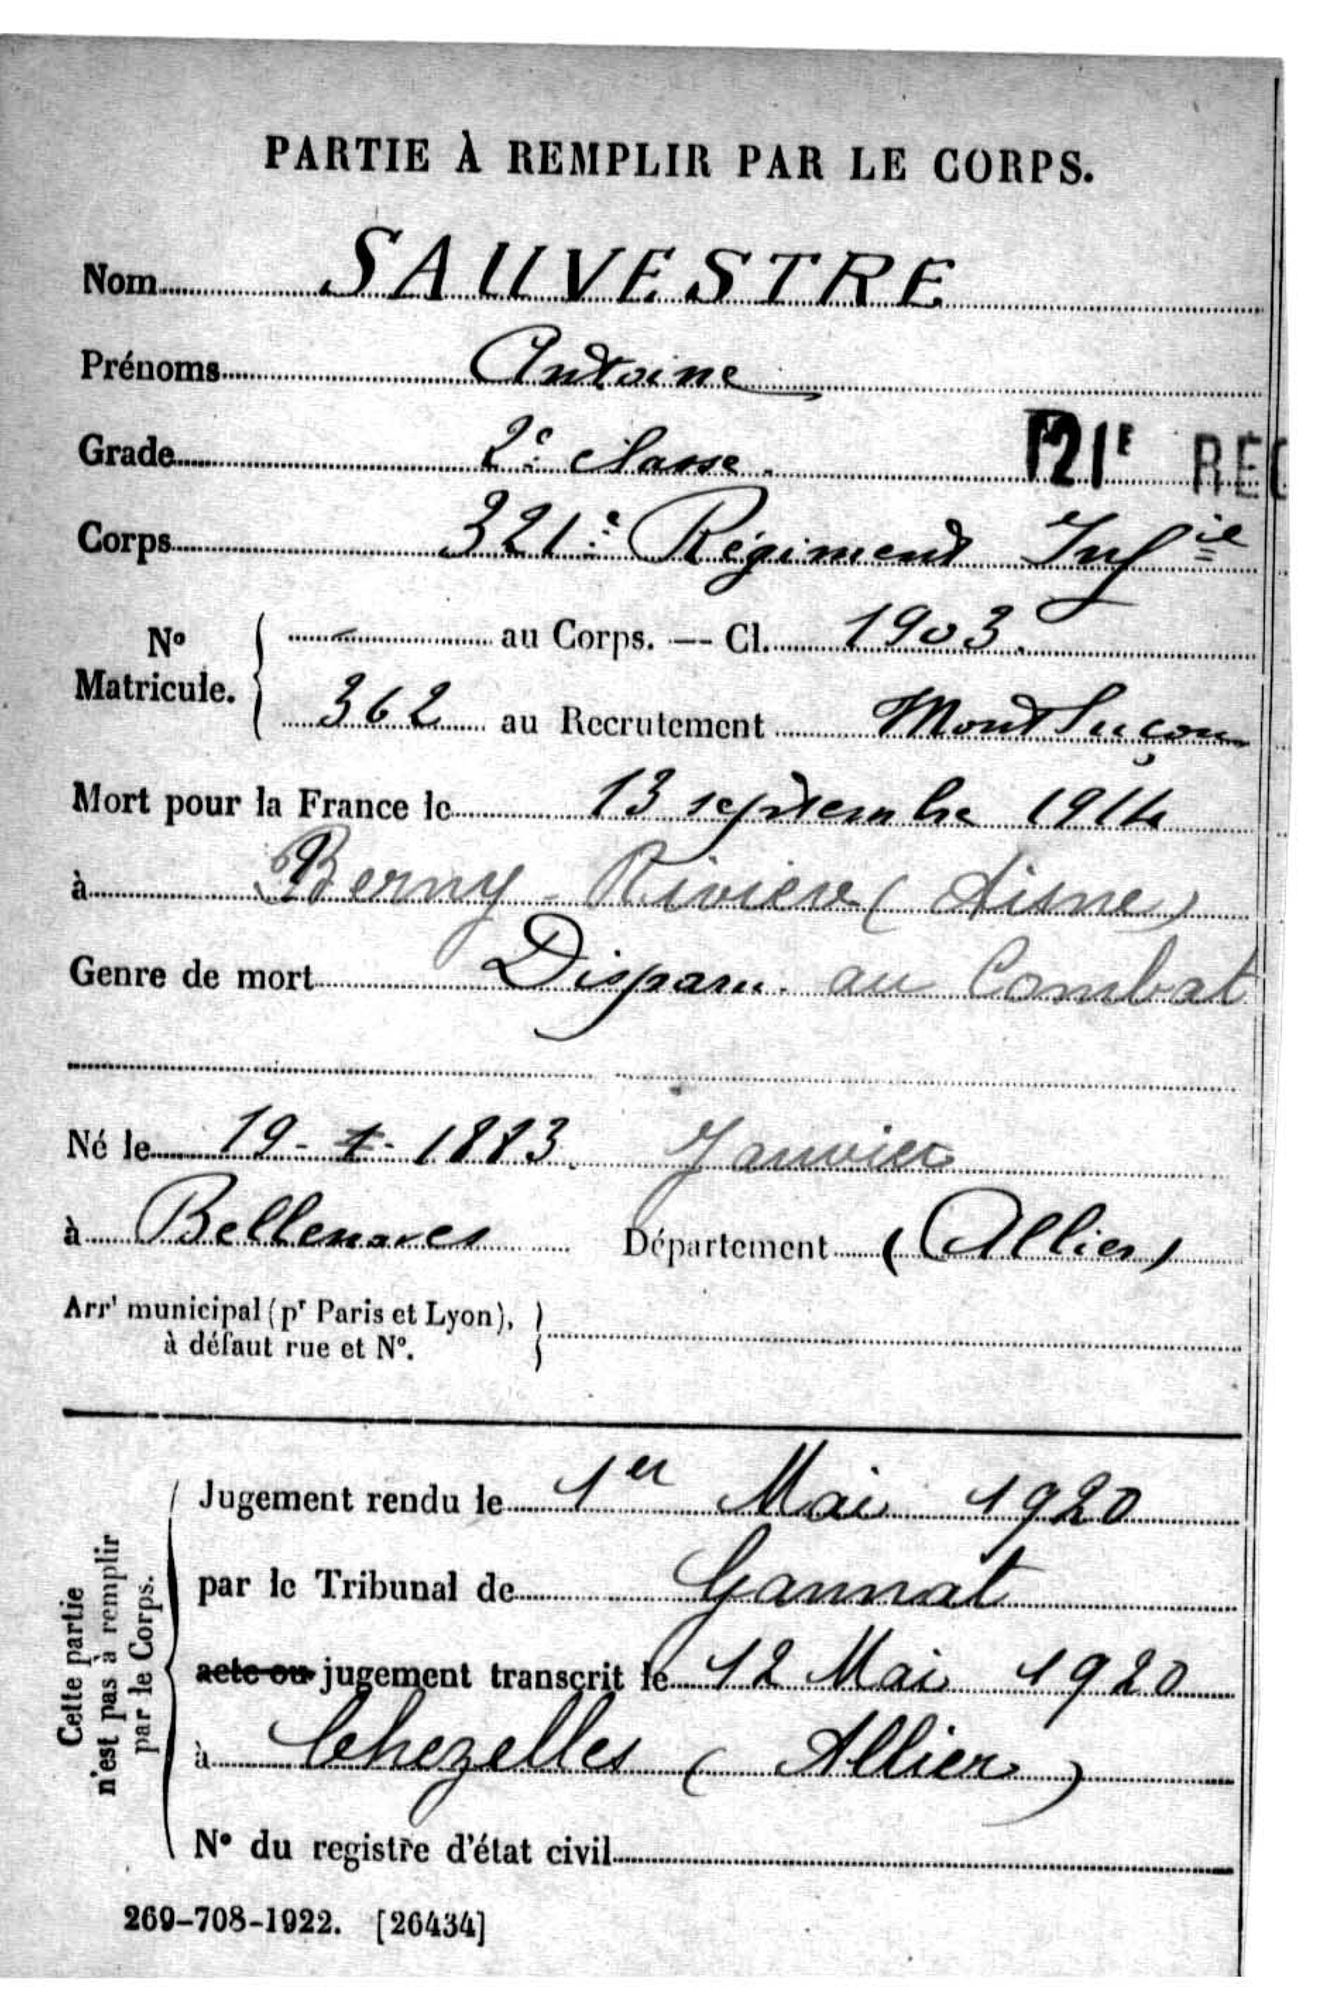 PARTIE À REMPLIR PAR LE CORPS.
Nom SAUVESTRE
Prénoms Antoine
Grade 2e classe. 121E RÉG
Corps 321e Régiment Infie
No Matricule. au Corps. — Cl. 1903.
362 au Recrutement Montluçon
Mort pour la France le 13 septembre 1914
à Berny-Rivière (Aisne)
Genre de mort Disparu au Combat
Né le 19-1-1883. Janvier
à Bellenaves Département (Allier)
Arrt municipal (pr Paris et Lyon),
à défaut rue et No.
Cette partie
n'est pas à remplir
par le Corps.
Jugement rendu le 1er Mai 1920
par le Tribunal de Gannat
acte ou jugement transcrit le 12 Mai 1920
à Chezelles (Allier)
No du registre d'état civil
269-708-1922. [26434]